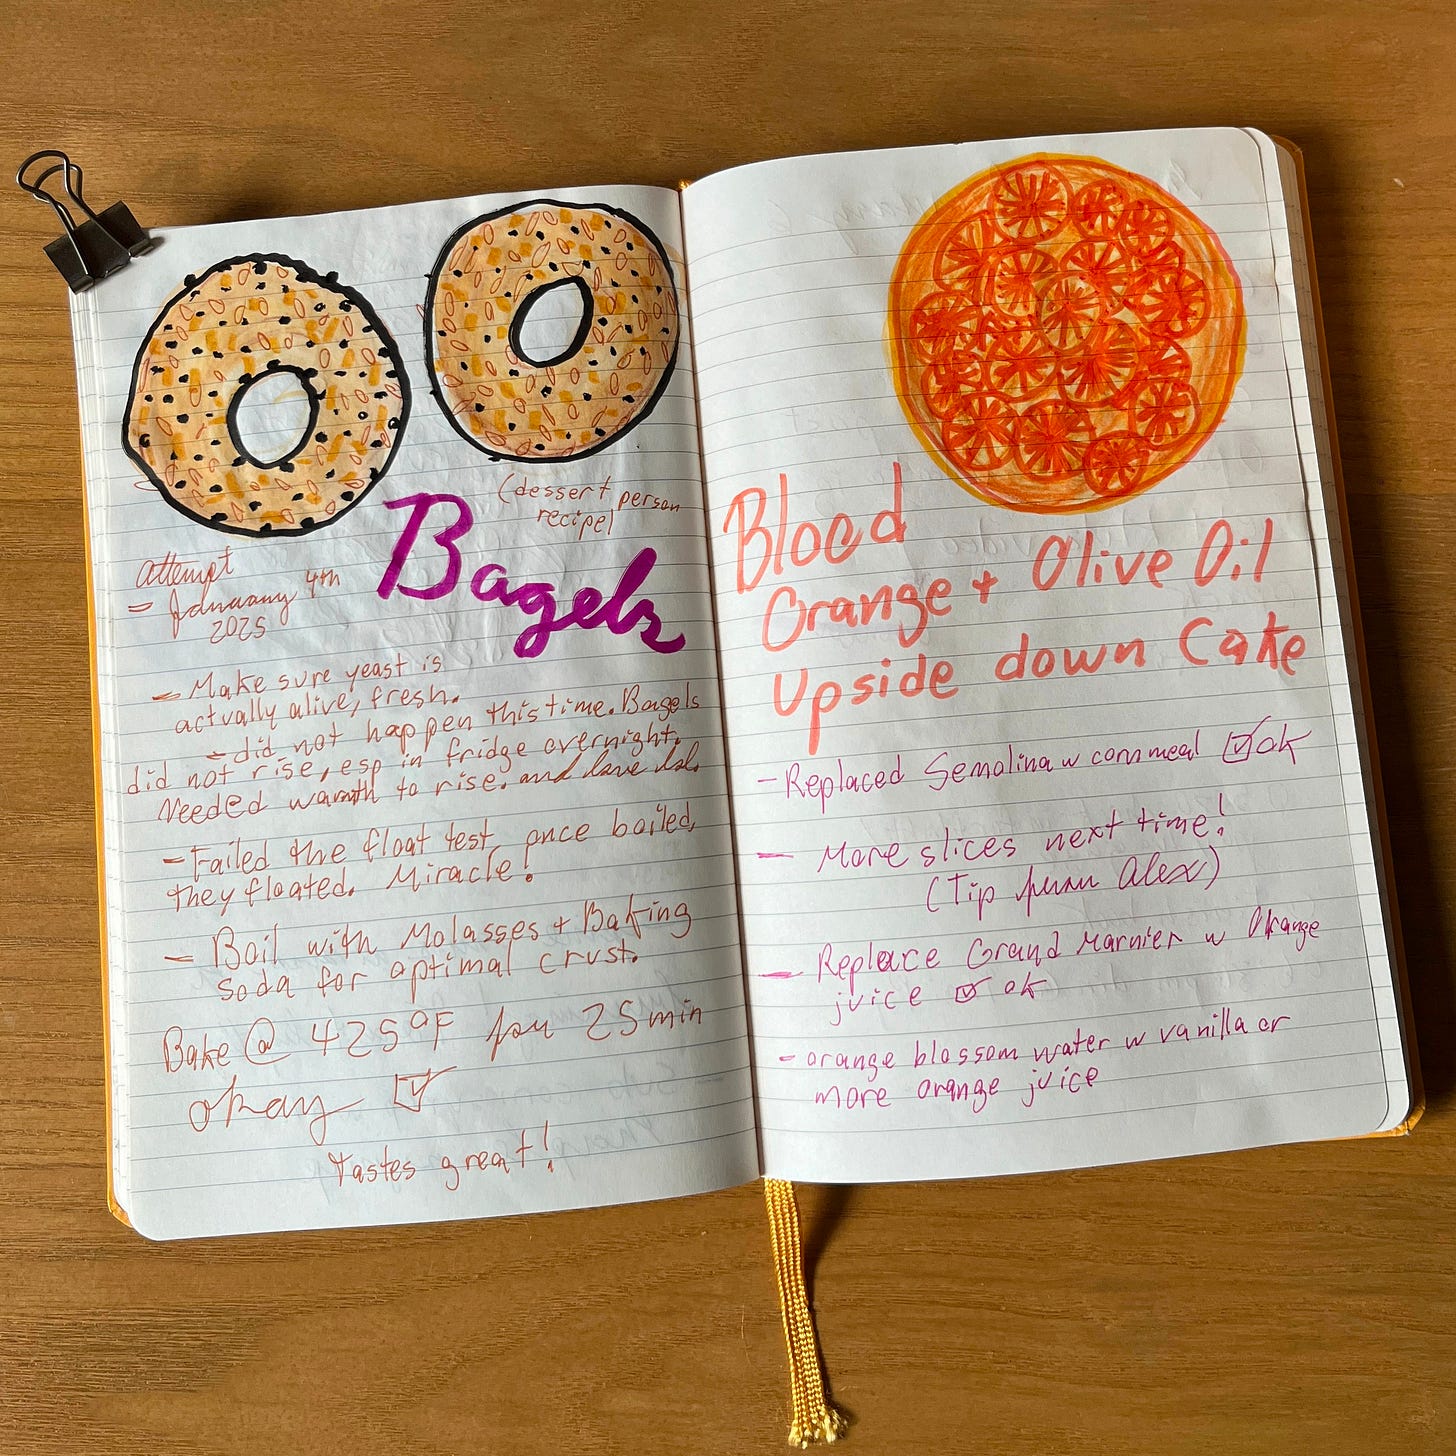 (dessert person
recipe)
Bagels
attempt
- January 4th
2025
- Make sure yeast is
actually alive, fresh.
- did not happen this time. Bagels
did not rise, esp in fridge overnight.
Needed warmth to rise. and love lol.
- Failed the float test, once boiled,
they floated. Miracle!
- Boil with Molasses + Baking
soda for optimal crust.
Bake @ 425°F for 25 min
okay ☑
Tastes great!
Blood
Orange + Olive Oil
Upside down Cake
- Replaced Semolina w cornmeal ☑ ok
- More slices next time!
(Tip from Alex)
- Replace Grand Marnier w Orange
juice ☑ ok
- orange blossom water w vanilla or
more orange juice